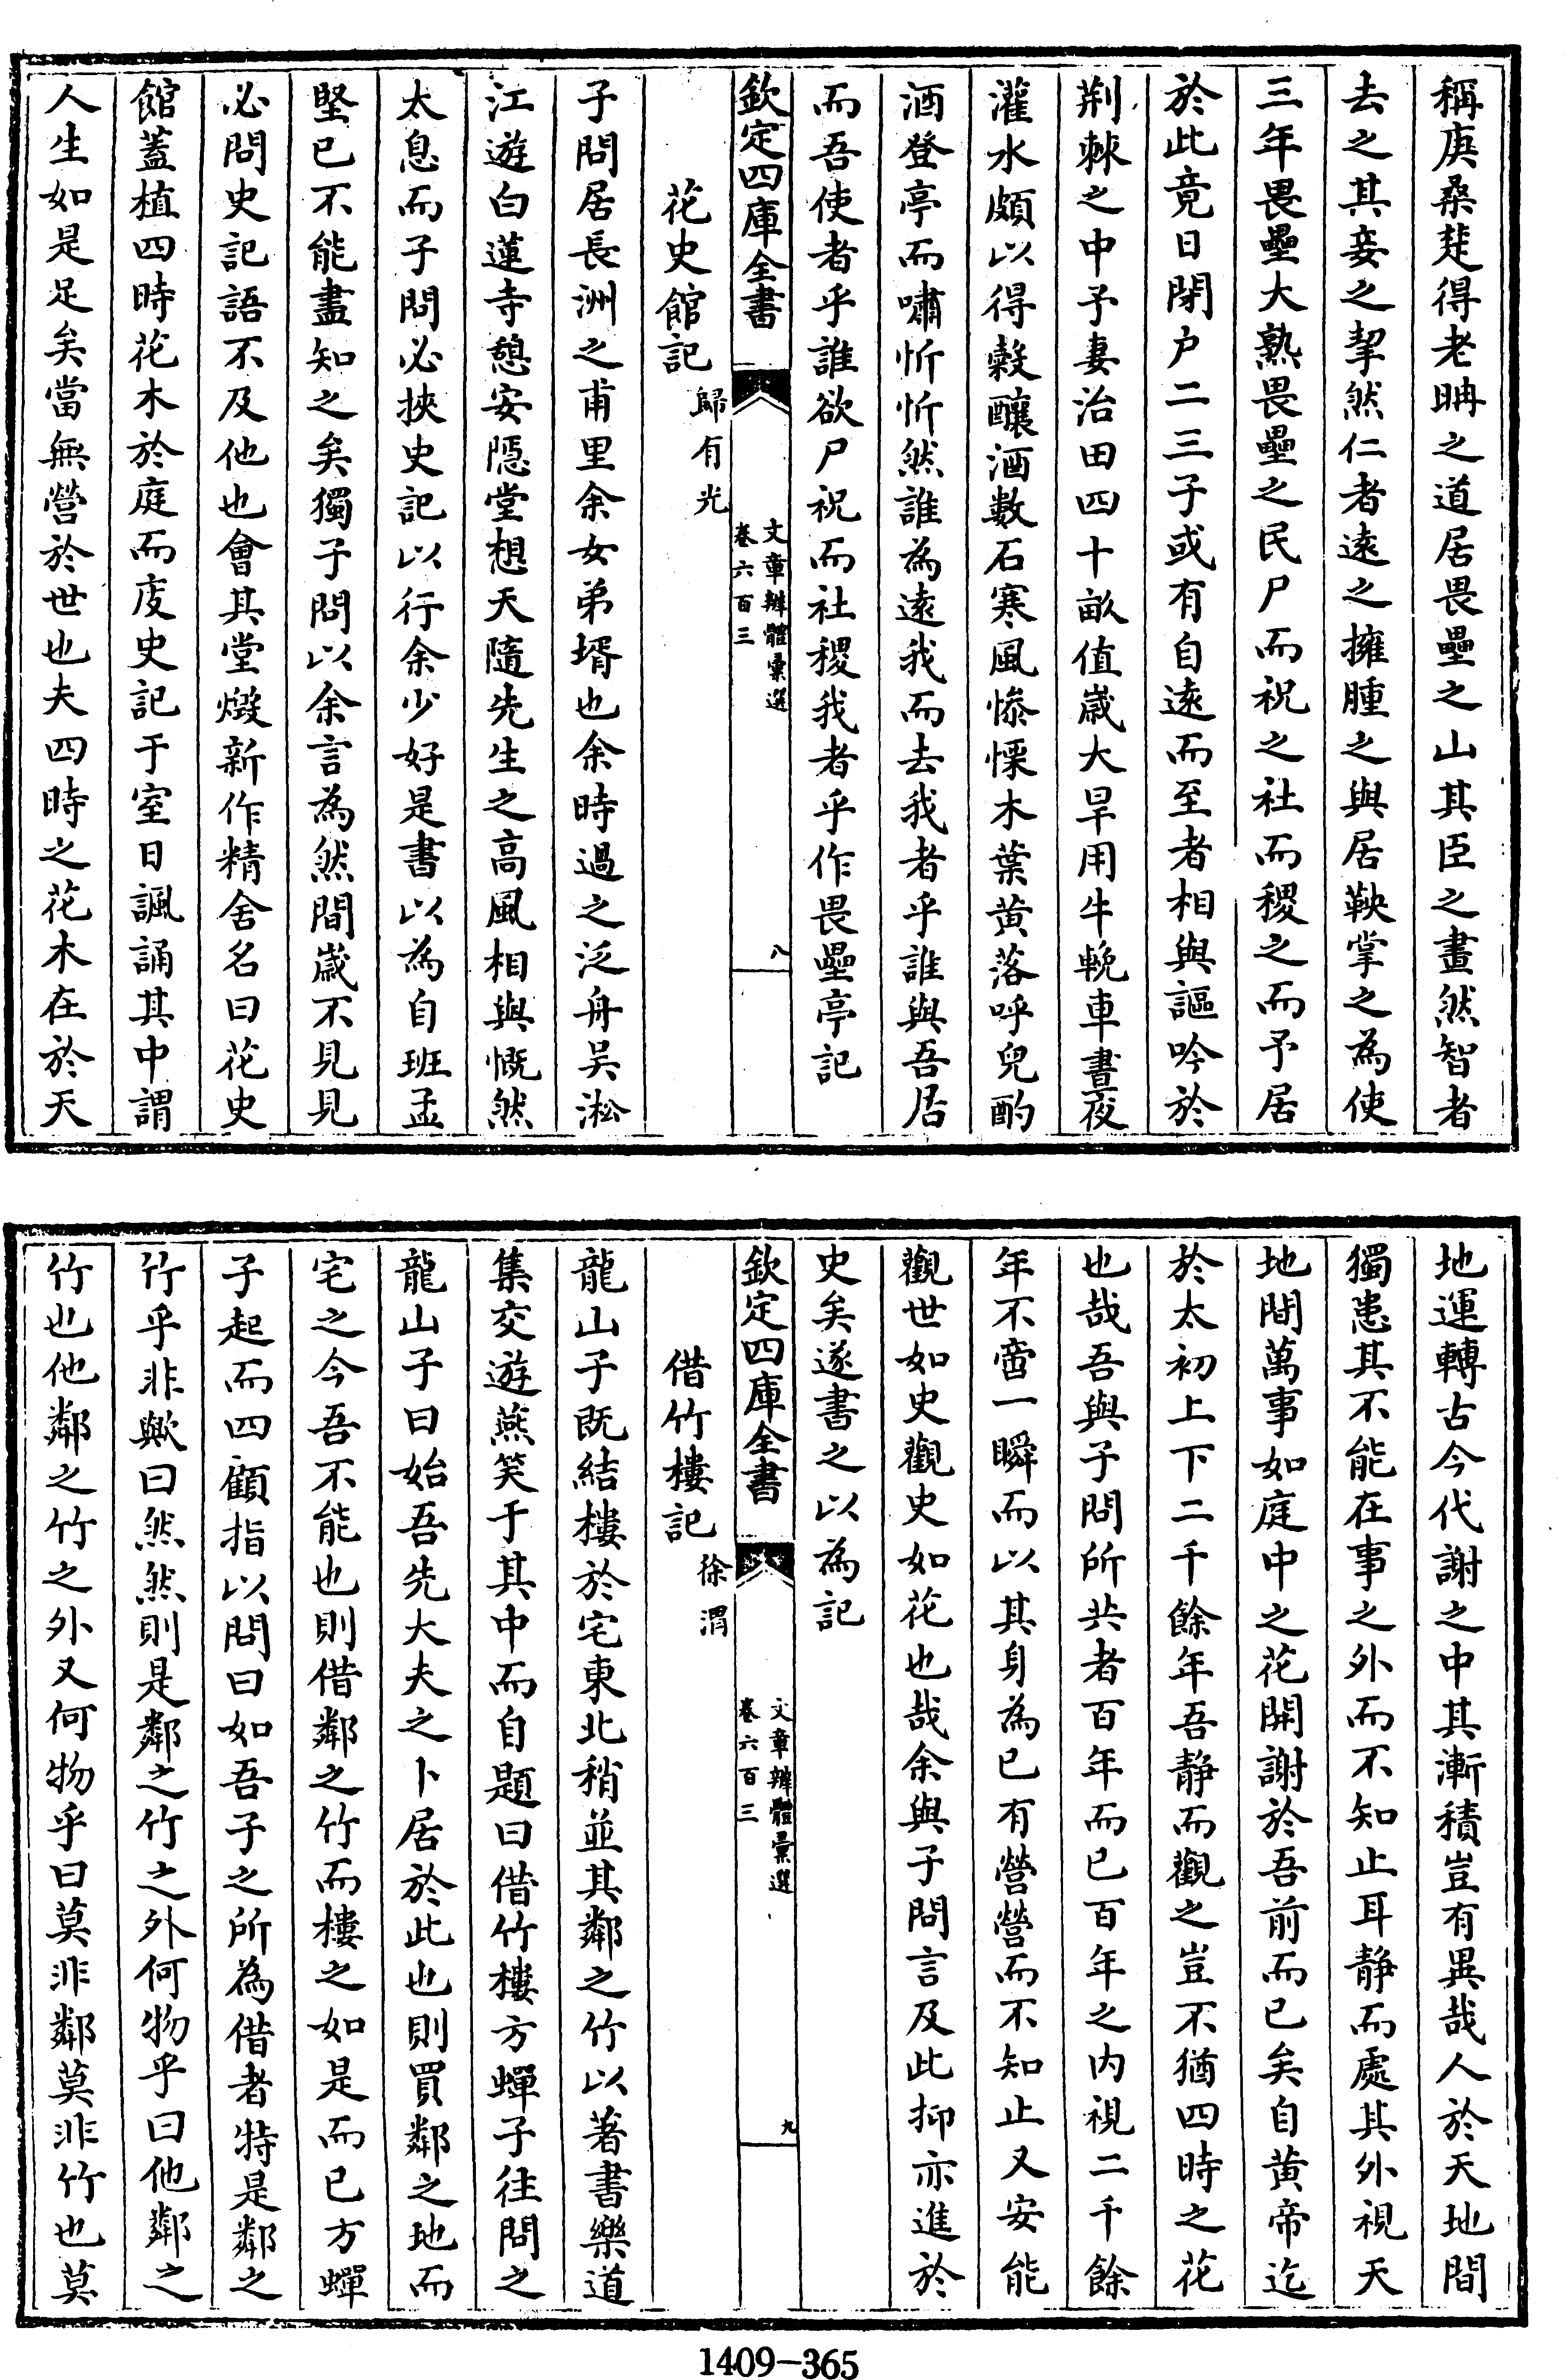 稱庚桑楚得老聃之道居畏壘之山其臣之畫然智者
去之其妾之挈然仁者遠之擁腫之與居鞅掌之為使
三年畏壘大熟畏壘之民尸而祝之社而稷之而予居
於此竟日閉户二三子或有自遠而至者相與謳吟於
荆棘之中予妻治田四十畝值嵗大旱用牛輓車晝夜
灌水頗以得榖釀酒數石寒風慘慄木葉黄落呼兒酌
酒登亭而嘯忻忻然誰為遠我而去我者乎誰與吾居
而吾使者乎誰欲尸祝而社稷我者乎作畏壘亭記
欽定四庫全書
文章辨體彚選
卷六百三
八
花史館記
歸有光
子問居長洲之甫里余女弟壻也余時過之泛舟吴淞
江遊白蓮寺憩安隠堂想天隨先生之高風相與慨然
太息而子問必挾史記以行余少好是書以為自班孟
堅已不能盡知之矣獨子問以余言為然間嵗不見見
必問史記語不及他也會其堂燬新作精舍名曰花史
館蓋植四時花木於庭而庋史記于室日諷誦其中謂
人生如是足矣當無營於世也夫四時之花木在於天
地運轉古今代謝之中其漸積豈有異哉人於天地間
獨患其不能在事之外而不知止耳静而處其外視天
地間萬事如庭中之花開謝於吾前而已矣自黄帝迄
於太初上下二千餘年吾静而觀之豈不猶四時之花
也哉吾與子問所共者百年而已百年之内視二千餘
年不啻一瞬而以其身為已有營營而不知止又安能
觀世如史觀史如花也哉余與子問言及此抑亦進於
史矣遂書之以為記
欽定四庫全書
文章辨體彚選
卷六百三
九
借竹樓記
徐渭
龍山子既結樓於宅東北稍並其鄰之竹以著書樂道
集交遊燕笑于其中而自題曰借竹樓方蟬子徃問之
龍山子曰始吾先大夫之卜居於此也則買鄰之地而
宅之今吾不能也則借鄰之竹而樓之如是而已方蟬
子起而四顧指以問曰如吾子之所為借者特是鄰之
竹乎非歟曰然然則是鄰之竹之外何物乎曰他鄰之
竹也他鄰之竹之外又何物乎曰莫非鄰莫非竹也莫
1409-365